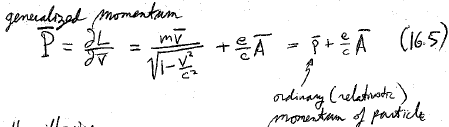 generalized momentum
P̄ = ∂L/∂v̄ = mv̄/√(1-v²/c²) + e/c Ā = p̄ + e/c Ā (16.5)
ordinary (relativistic)
momentum of particle